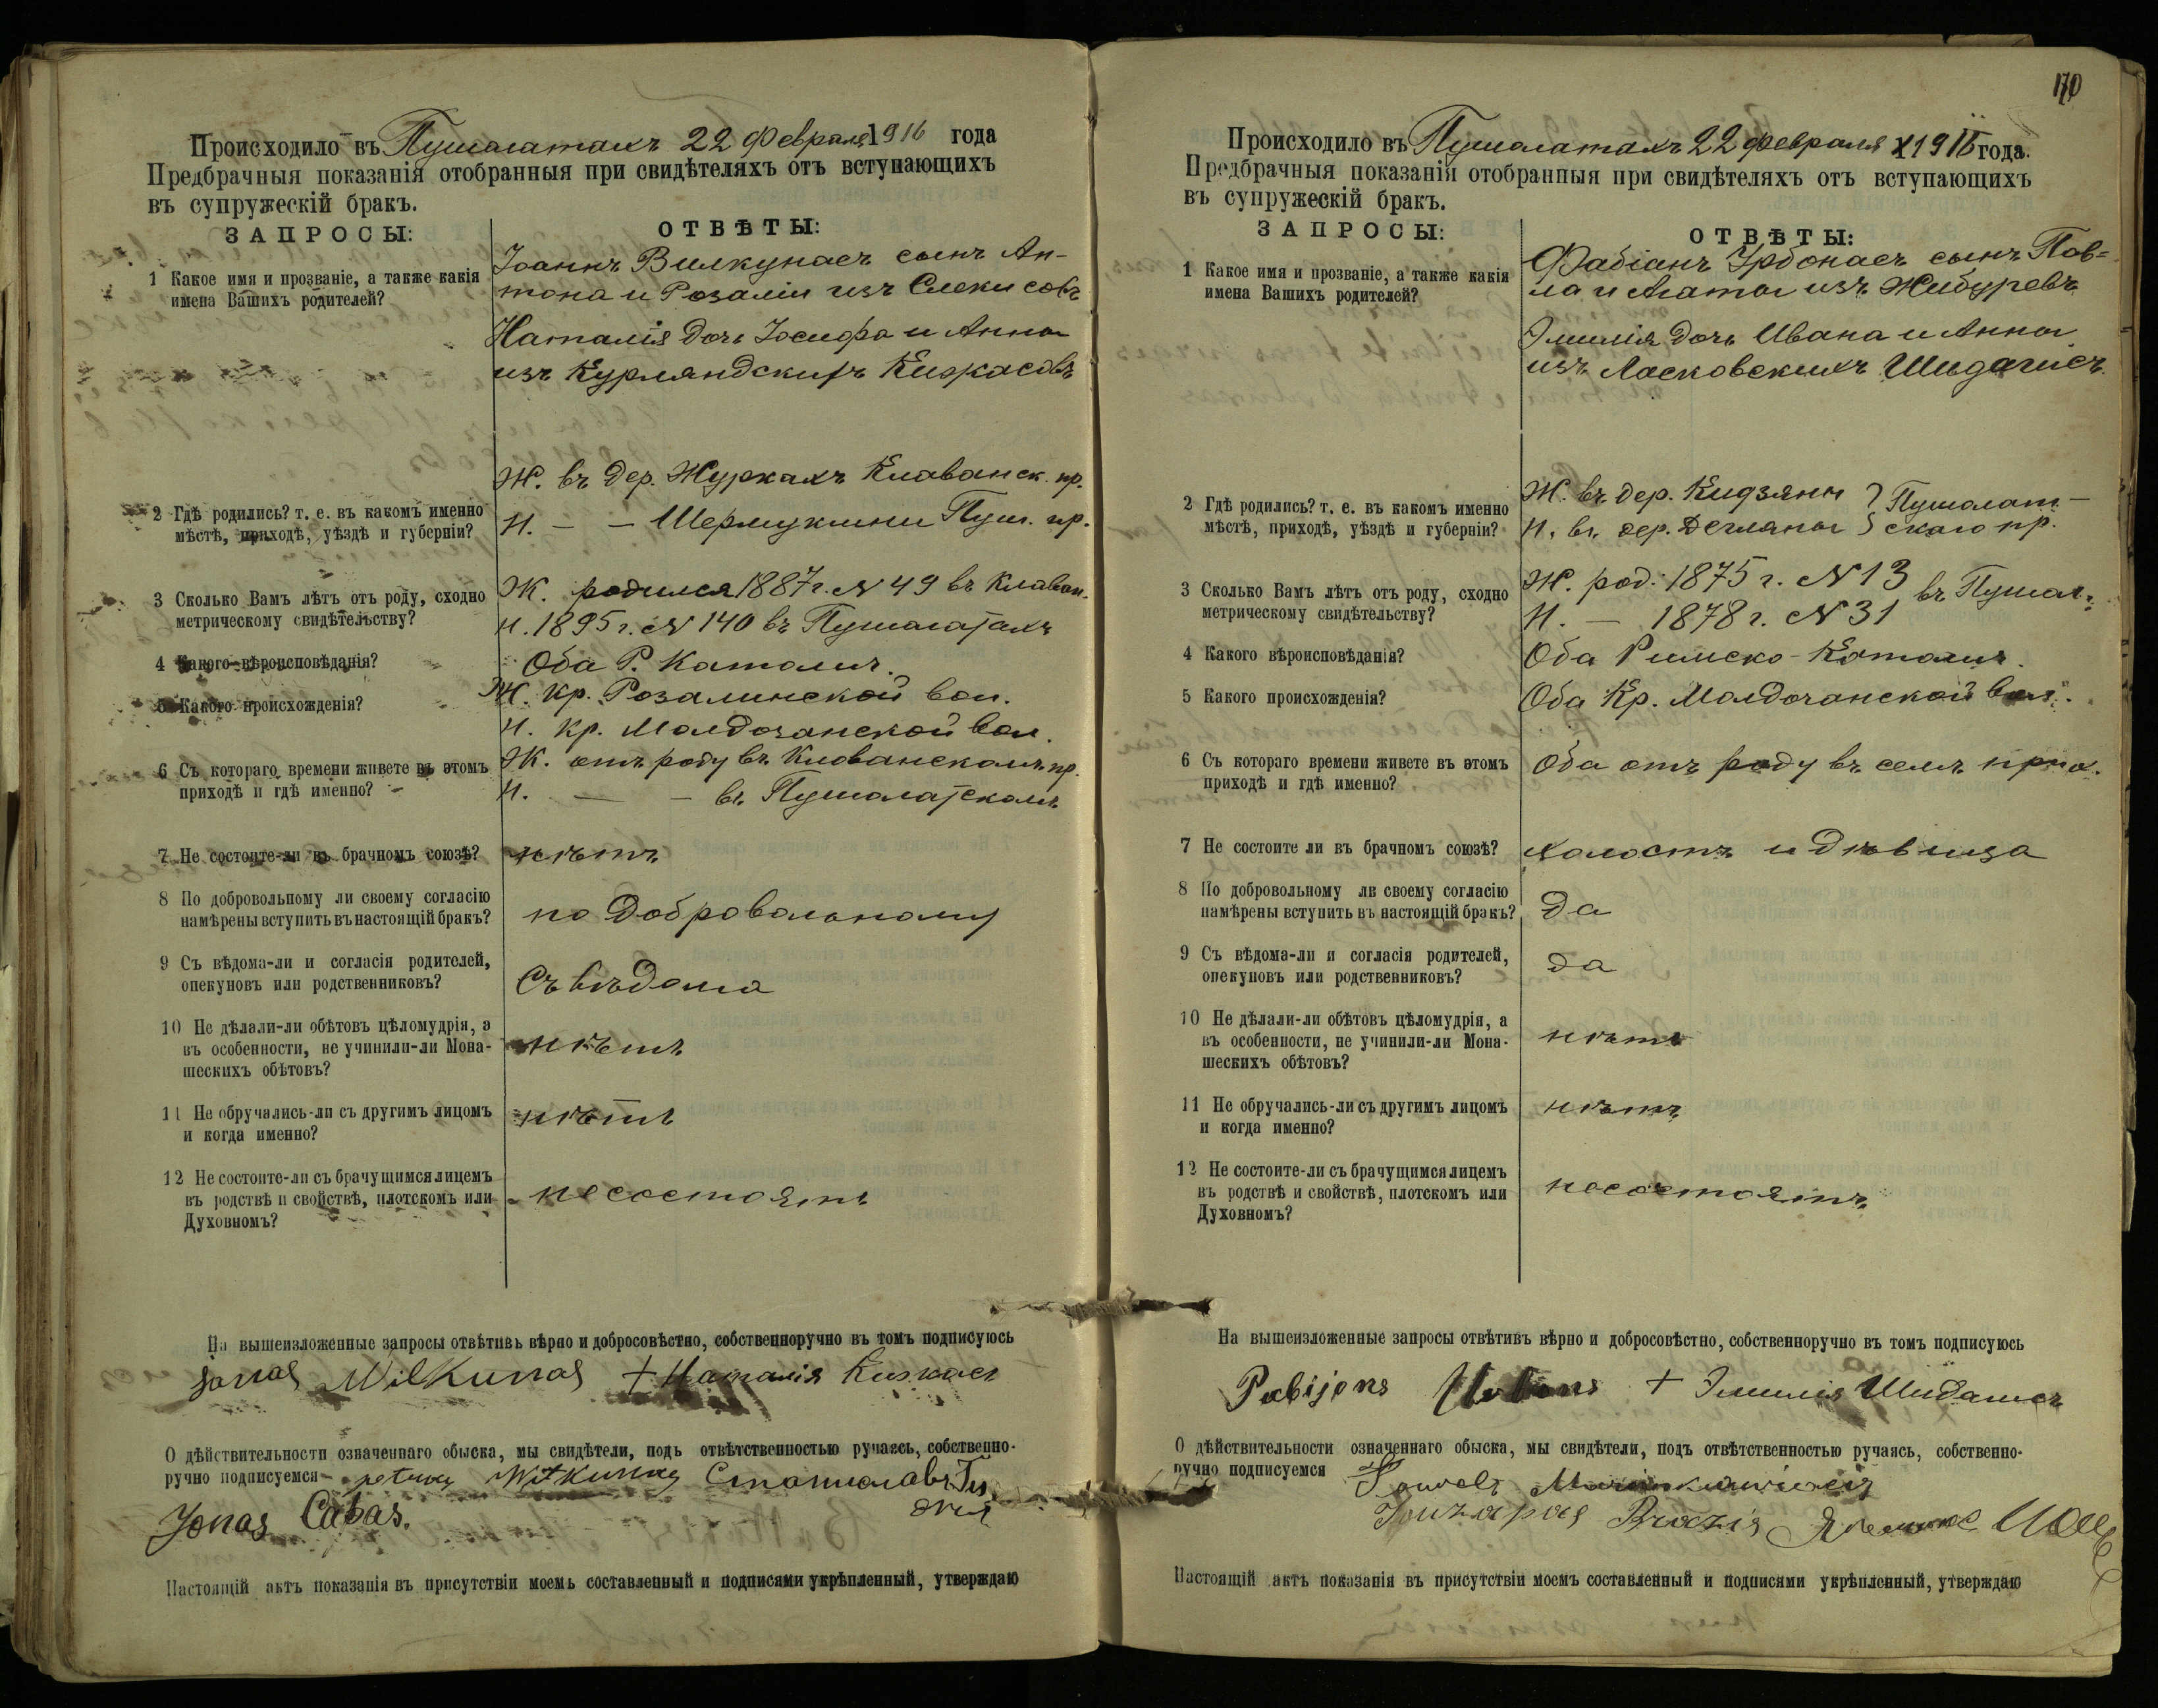 Происходило въ Пушалатахъ 22 Февраля 1916 года
Предбрачныя показанія отобранныя при свидѣтеляхъ отъ вступающихъ
въ супружескій бракъ.
ЗАПРОСЫ:
ОТВѢТЫ:
1 Какое имя и прозваніе, а также какія
имена Вашихъ родителей?
Іоаннъ Вилкунасъ сынъ Ан-
тона и Розаліи изъ
Наталія дочь Іосифа и Анны
изъ Курляндскихъ
2 Гдѣ родились? т. е. въ какомъ именно
мѣстѣ, приходѣ, уѣздѣ и губерніи?
Ж. въ дер. Журкахъ Клаванск. пр.
Н. — — Пуш. пр.
3 Сколько Вамъ лѣтъ отъ роду, сходно
метрическому свидѣтельству?
Ж. родился 1887 г. N 49 въ Клаван.
Н. 1895 г. N 140 въ Пушалатахъ
4 Какого вѣроисповѣданія?
Оба Р. Католич.
5 Какого происхожденія?
Ж. кр. Розалинской вол.
Н. кр. Молдочанской вол.
6 Съ котораго времени живете въ этомъ
приходѣ и гдѣ именно?
Ж. отъ роду въ Клованскомъ пр.
Н. — — въ Пушалатскомъ
7 Не состоите-ли въ брачномъ союзѣ?
нѣтъ
8 По добровольному ли своему согласію
намѣрены вступить въ настоящій бракъ?
по добровольному
9 Съ вѣдома-ли и согласія родителей,
опекуновъ или родственниковъ?
Съ вѣдома
10 Не дѣлали-ли обѣтовъ цѣломудрія, а
въ особенности, не учинили-ли Мона-
шескихъ обѣтовъ?
нѣтъ
11 Не обручались-ли съ другимъ лицомъ
и когда именно?
нѣтъ
12 Не состоите-ли съ брачущимся лицемъ
въ родствѣ и свойствѣ, плотскомъ или
Духовномъ?
несостоятъ
На вышеизложенные запросы отвѣтивъ вѣрно и добросовѣстно, собственноручно въ томъ подписуюсь
jonas Wilkunas + Наталія
О дѣйствительности означеннаго обыска, мы свидѣтели, подъ отвѣтственностью ручаясь, собственно-
ручно подписуемся Станиславъ
Jonas Cabas.
Настоящій актъ показанія въ присутствіи моемъ составленный и подписями укрѣпленный, утверждаю
170
Происходило въ Пушалатахъ 22 февраля 1916 года.
Предбрачныя показанія отобранныя при свидѣтеляхъ отъ вступающихъ
въ супружескій бракъ.
ЗАПРОСЫ:
ОТВѢТЫ:
1 Какое имя и прозваніе, а также какія
имена Вашихъ родителей?
Фабіанъ Урбонасъ сынъ Пав-
ла и Агаты изъ Жибуревъ
Эмилія дочь Ивана и Анны
изъ Ласковскихъ
2 Гдѣ родились? т. е. въ какомъ именно
мѣстѣ, приходѣ, уѣздѣ и губерніи?
Ж. въ дер. Кидзяны } Пушалат-
Н. въ дер. Дегляны } скаго пр.
3 Сколько Вамъ лѣтъ отъ роду, сходно
метрическому свидѣтельству?
Ж. род. 1875 г. N 13 въ Пушал.
Н. — 1878 г. N 31
4 Какого вѣроисповѣданія?
Оба Римско-Католич.
5 Какого происхожденія?
Оба Кр. Молдочанской вол.
6 Съ котораго времени живете въ этомъ
приходѣ и гдѣ именно?
Оба отъ роду въ семъ прих.
7 Не состоите ли въ брачномъ союзѣ?
холостъ и дѣвица
8 По добровольному ли своему согласію
намѣрены вступить въ настоящій бракъ?
Да
9 Съ вѣдома-ли и согласія родителей,
опекуновъ или родственниковъ?
да
10 Не дѣлали-ли обѣтовъ цѣломудрія, а
въ особенности, не учинили-ли Мона-
шескихъ обѣтовъ?
нѣтъ
11 Не обручались-ли съ другимъ лицомъ
и когда именно?
нѣтъ
12 Не состоите-ли съ брачущимся лицемъ
въ родствѣ и свойствѣ, плотскомъ или
Духовномъ?
несостоятъ
На вышеизложенные запросы отвѣтивъ вѣрно и добросовѣстно, собственноручно въ томъ подписуюсь
Pabijons + Эмилія
О дѣйствительности означеннаго обыска, мы свидѣтели, подъ отвѣтственностью ручаясь, собственно-
ручно подписуемся
Настоящій актъ показанія въ присутствіи моемъ составленный и подписями укрѣпленный, утверждаю